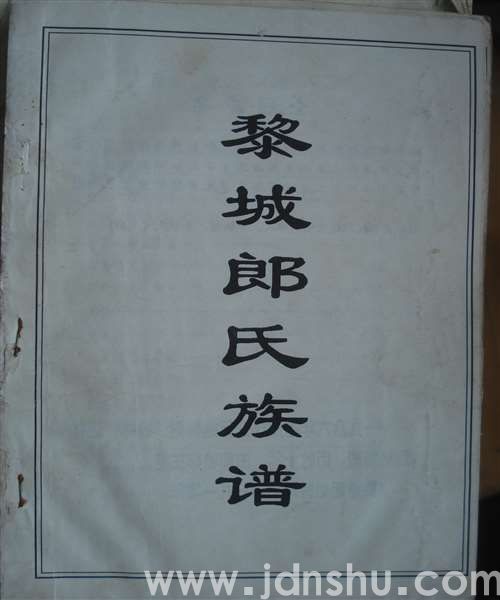 黎城郎氏族谱
www.jdnshu.com